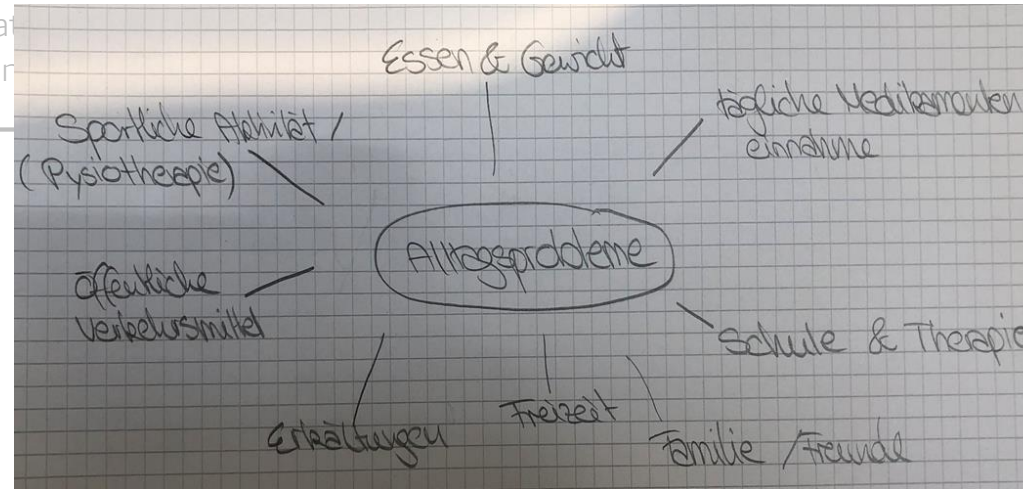 Essen & Gewicht
tägliche Medikamenten
einnahme
Sportliche Aktivität /
(Pysiotherapie)
Alltagsprobleme
öffentliche
Verkehrsmittel
Schule & Therapie
Freizeit
Erkältungen
Familie / Freunde